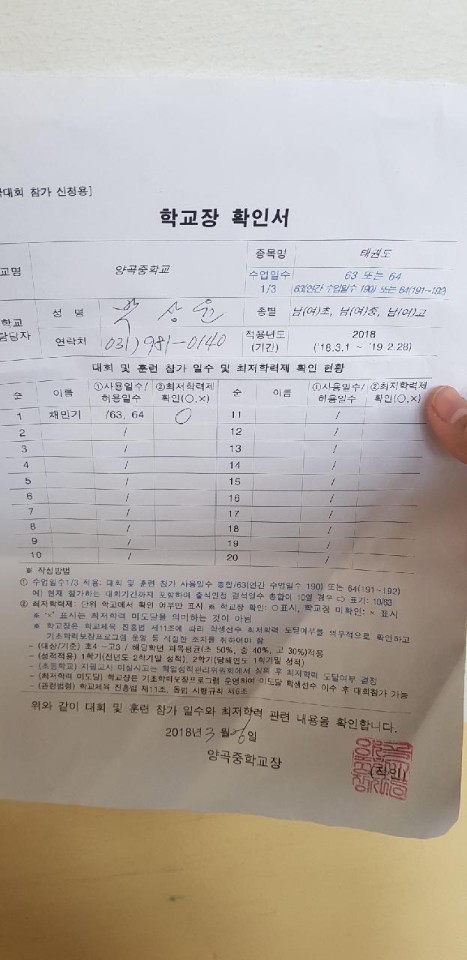 대회 참가 신청용]
학교장 확인서
교명 양곡중학교 종목명 태권도
수업일수 1/3 63 또는 64
63(연간 수업일수 190) 또는 64(191~192)
학교 담당자 성 명 상 종별 남(여)초, 남(여)중, 남(여)고
연락처 031) 981-0140 적용년도 (기간) 2018 ('18.3.1 ~ '19.2.28)
대회 및 훈련 참가 일수 및 최저학력제 확인 현황
순 이름 ①사용일수/허용일수 ②최저학력제 확인(○,×) 순 이름 ①사용일수/허용일수 ②최저학력제 확인(○,×)
1 채민기 /63, 64 ○ 11 /
2 / 12 /
3 / 13 /
4 / 14 /
5 / 15 /
6 / 16 /
7 / 17 /
8 / 18 /
9 / 19 /
10 / 20 /
※ 작성방법
① 수업일수1/3 적용: 대회 및 훈련 참가 사용일수 총합/63(연간 수업일수 190) 또는 64(191~192)
예) 현재 참가하는 대회기간까지 포함하여 출석인정 결석일수 총합이 10일 경우 ⇨ 표기: 10/63
② 최저학력제: 단위 학교에서 확인 여부만 표시 ※ 학교장 확인: ○표시, 학교장 미확인: × 표시
※ '×' 표시는 최저학력 미도달을 의미하는 것이 아님
※ 학교장은 학교체육 진흥법 제11조에 따라 학생선수 최저학력 도달여부를 의무적으로 확인하고
기초학력보장프로그램 운영 등 적절한 조치를 취하여야 함
- (대상/기준) 초4 ~고3 / 해당학년 과목평균(초 50%, 중 40%, 고 30%)적용
- (성적적용) 1학기(전년도 2학기말 성적), 2학기(당해연도 1학기말 성적)
- (초등학교) 지필고사 미실시교는 학업성적관리위원회에서 심의 후 최저학력 도달여부 결정
- (최저학력 미도달) 학교장은 기초학력보장프로그램 운영하여 미도달 학생선수 이수 후 대회참가 가능
- (관련법령) 학교체육 진흥법 제11조, 동법 시행규칙 제6조
위와 같이 대회 및 훈련 참가 일수와 최저학력 관련 내용을 확인합니다.
2018년 3월 6일
양곡중학교장 (직인)